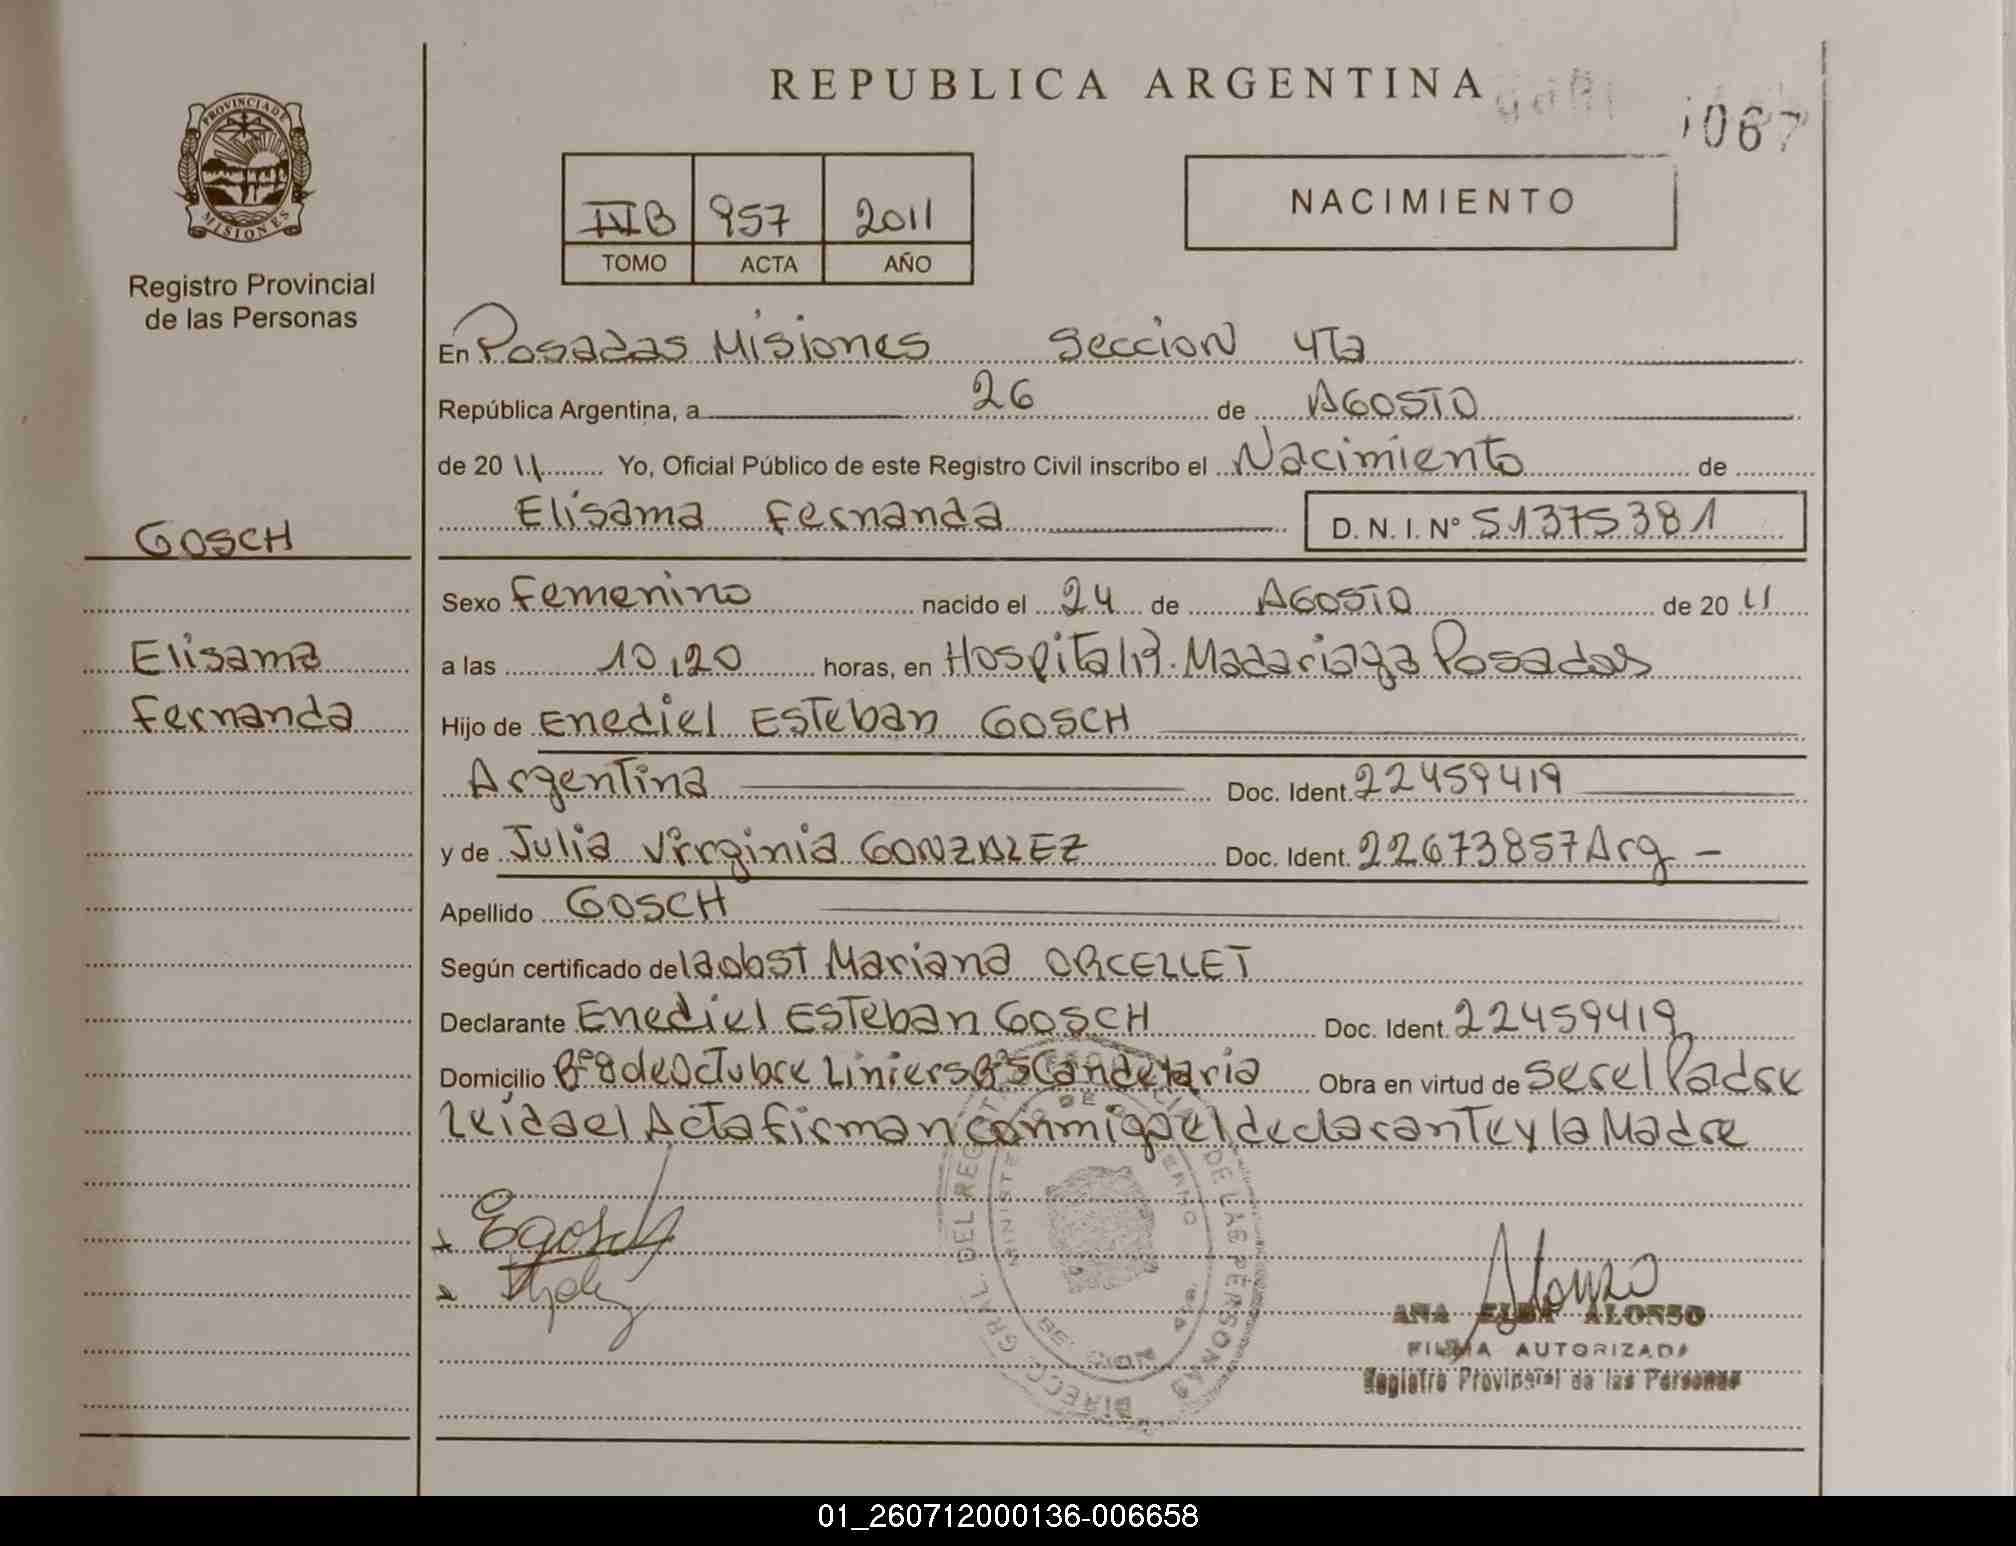 REPUBLICA ARGENTINA
067
PROVINCIA DE
MISIONES
Registro Provincial
de las Personas
957 2011
TOMO ACTA AÑO
NACIMIENTO
En Posadas Misiones Seccion 4Ta
República Argentina, a 26 de AGOSTO
de 20 11 Yo, Oficial Público de este Registro Civil inscribo el Nacimiento de
Elisama Fernanda D. N. I. Nº 51375381
GOSCH
Elisama
Fernanda
Sexo Femenino nacido el 24 de AGOSTO de 20 11
a las 10,20 horas, en Hospital R. Madariaga Posadas
Hijo de Enediel Esteban GOSCH
Argentina Doc. Ident. 22459419
y de Julia Virginia GONZALEZ Doc. Ident. 22673857 Arg -
Apellido GOSCH
Según certificado de la obst Mariana ORCELLET
Declarante Enediel Esteban GOSCH Doc. Ident. 22459419
Domicilio Bº 8 de Octubre Liniers Candelaria Obra en virtud de ser el Padre
Leida el Acta firman conmigo el declarante y la Madre
EGosch
DIRECC. GRAL. DEL REGISTRO PROVINCIAL DE LAS PERSONAS
MINISTERIO DE GOBIERNO
Alonso
ANA ELBA ALONSO
FIRMA AUTORIZADA
Registro Provincial de las Personas
01_260712000136-006658